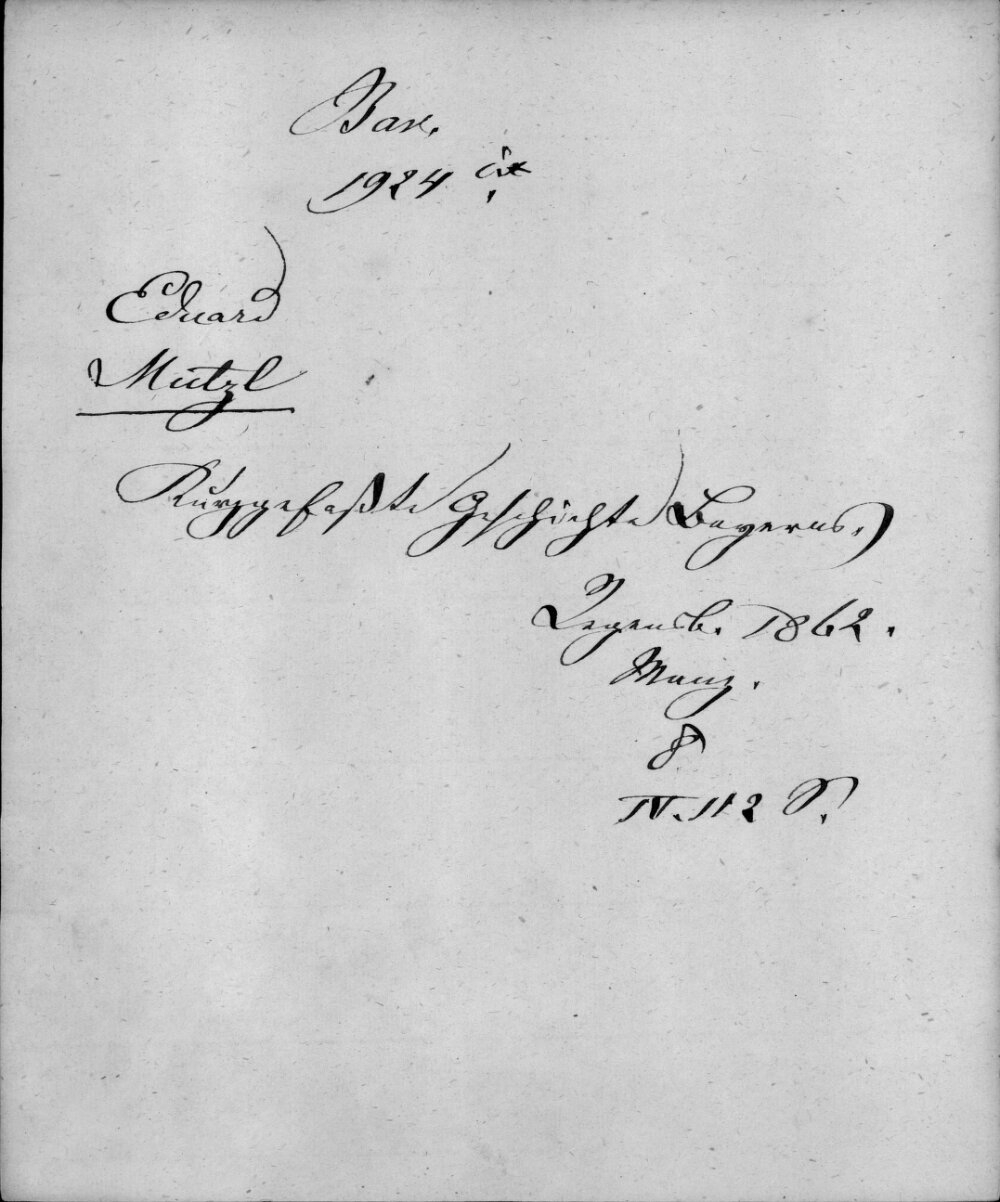 Bav.
1924 ix
Eduard
Mutzl
Kurzgefaßte Geschichte Bayerns.
Regensb. 1862.
Manz.
8
IV. 112 S.